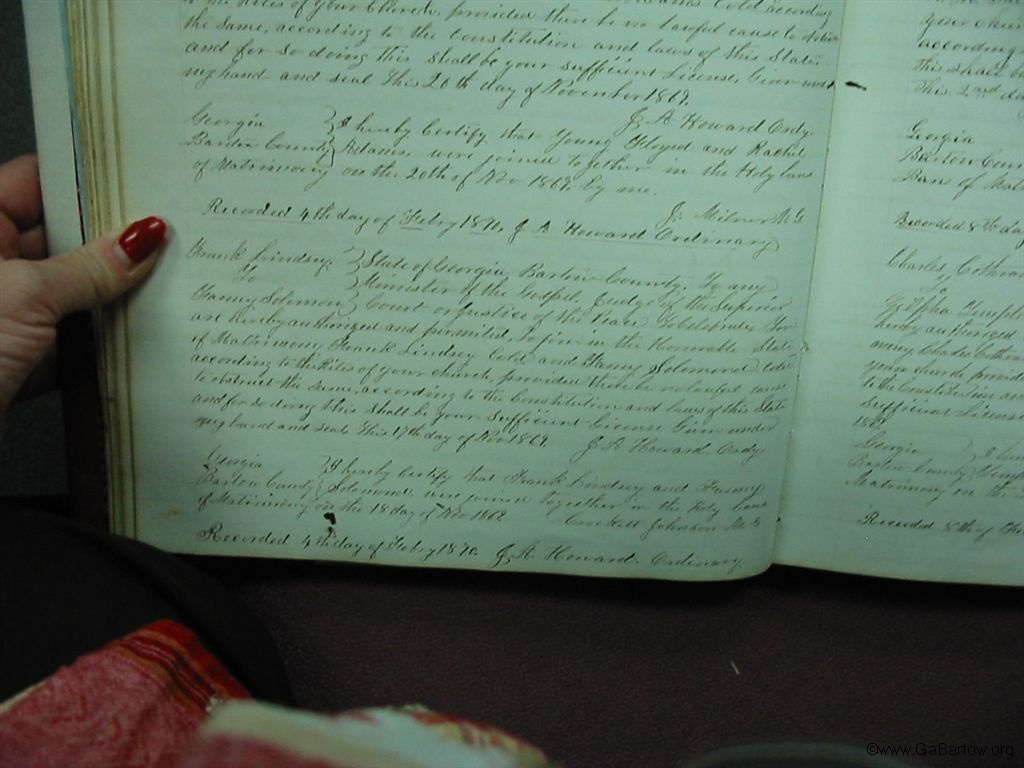 to the Rites of your Church, provided there be no lawful cause to obstruct
the same, according to the Constitution and laws of this State
and for so doing this shall be your sufficient License, Given under
my hand and seal This 20th day of November 1869.
J A Howard Ordy.
Georgia } I hereby Certify that Young Floyed and Rachel
Bartow County } Adams, were joined together in the Holy bans
of Matrimony on the 20th of Nov 1869. By me.
J. Milner M.G
Recorded 4th day of Febry 1870, J A Howard Ordinary
Frank Lindsey. } State of Georgia, Bartow County. To any
To } Minister of the Gospel, Judge of the Superior
Fanny Solomon } Court or Justice of the Peace To Celebrate You
are hereby authorized and permitted, To join in the Honorable State
of Mattrimony, Frank Lindsey Cold and Fanny Solomond Cold
according to the Rites of your church, provided there be no lawful cause
to obstruct the same, according to the Constitution and laws of this State
and for so doing this shall be your sufficient License Given under
my hand and seal This 17th day of Nov 1869. J A Howard Ordy
Georgia } I hereby Certify that Frank Lindsey and Fanny
Bartow County } Solomond, were joined together in the Holy bans
of Matrimony on the 18 day of Nov 1869. Crockett Johnson M.G
Recorded 4th day of Febry 1870. J A Howard. Ordinary.
your church
according
This shall be
This 2nd da
Georgia
Bartow Coun
Bans of Mat
Recorded 8th da
Charles Cothran
To
Zilpha Temple
hereby authorized
mony Charles Cothran
your church provided
to the Constitution and
Sufficient License
1869
Georgia
Bartow County
Matrimony on the
Recorded 8th of Feb
©www.GaBartow.org